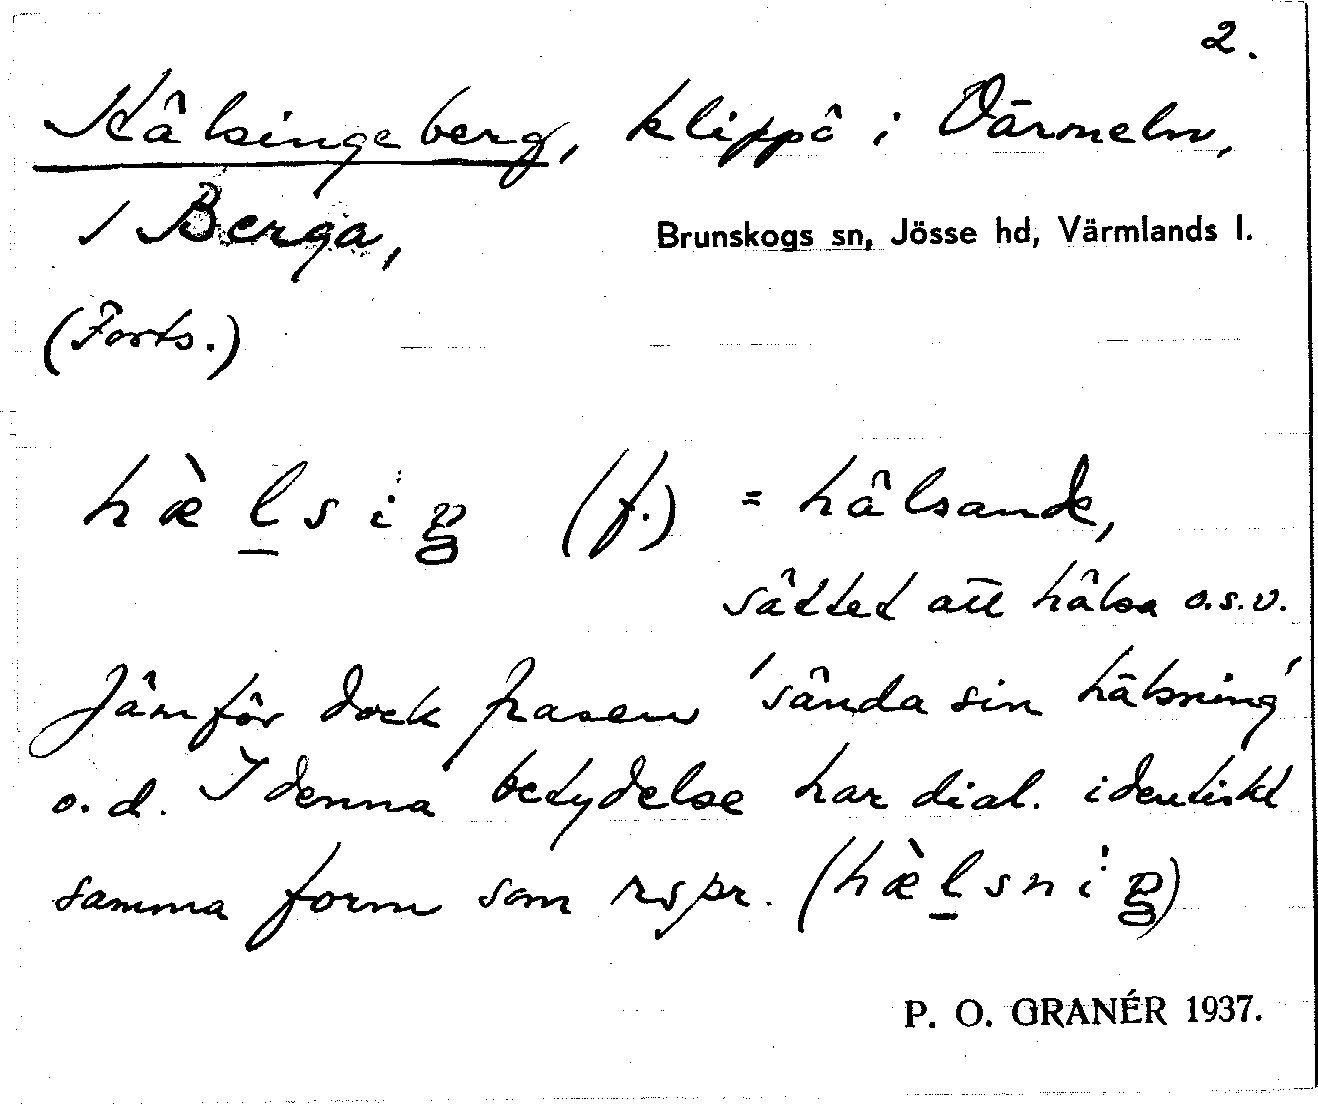 2.
Hälsingeberg, klippö i Värmeln,
/ Berga,
Brunskogs sn, Jösse hd, Värmlands l.
(Forts.)
hæ̀lsig (f.) = hälsande,
sättet att hälsa o.s.v.
Jämför dock frasen 'sända sin hälsning'
o.d. I denna betydelse har dial. identiskt
samma form som rspr. (hæ̀lsnig)
P. O. GRANÉR 1937.